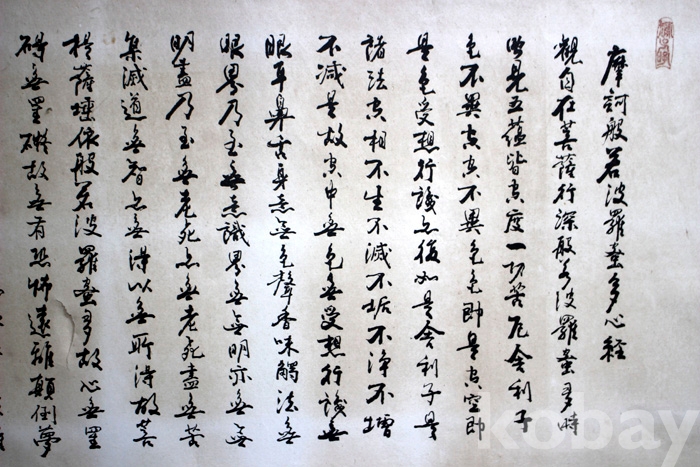 摩訶般若波羅蜜多心経
觀自在菩薩行深般若波羅蜜多時
照見五蘊皆空度一切苦厄舍利子
色不異空空不異色色即是空空即
是色受想行識亦復如是舍利子是
諸法空相不生不滅不垢不淨不增
不减是故空中無色無受想行識無
眼耳鼻舌身意無色聲香味觸法無
眼界乃至無意識界無無明亦無無
明盡乃至無老死亦無老死盡無苦
集滅道無智亦無得以無所得故菩
提薩埵依般若波羅蜜多故心無罣
碍無罣礙故無有恐怖遠離顛倒夢
kobay